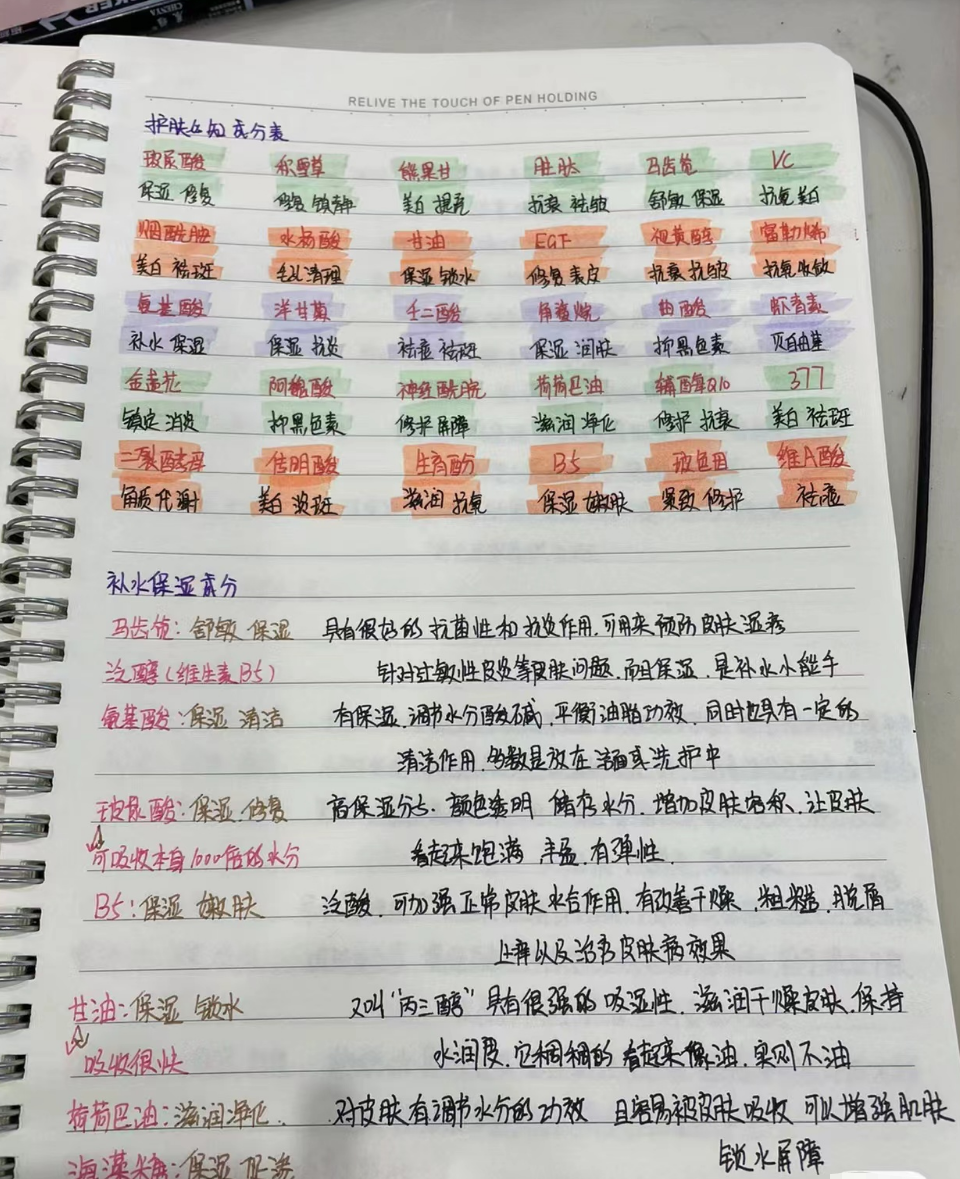 RELIVE THE TOUCH OF PEN HOLDING
护肤品知成分表
玻尿酸 积雪草 熊果甘 胜肽 马齿苋 VC
保湿 修复 修复 镇静 美白 提亮 抗衰 祛皱 舒敏 保湿 抗氧 美白
烟酰胺 水杨酸 甘油 EGF 视黄醇 富勒烯
美白 祛斑 毛孔清理 保湿 锁水 修复表皮 抗衰 抗皱 抗氧 收敛
氨基酸 洋甘菊 壬二酸 角鲨烷 曲酸 虾青素
补水 保湿 保湿 抗炎 祛痘 祛斑 保湿 润肤 抑黑色素 灭自由基
金盏花 阿魏酸 神经酰胺 荷荷巴油 辅酶Q10 377
镇定 消炎 抑黑色素 修护屏障 滋润 净化 修护 抗衰 美白 祛斑
二裂酵母 传明酸 生育酚 B5 玻色因 维A酸
角质代谢 美白 淡斑 滋润 抗氧 保湿 嫩肤 紧致 修护 祛痘
补水保湿成分
马齿苋：舒敏 保湿 具有很好的抗菌性和抗炎作用，可用来预防皮肤湿疹
泛醇(维生素B5) 针对过敏性皮炎等皮肤问题，而且保湿，是补水小能手
氨基酸：保湿 清洁 有保湿，调节水分酸碱，平衡油脂功效，同时也具有一定的
清洁作用，多数是放在洁面或洗护中
玻尿酸：保湿，修复 高保湿分子，颜色透明 储存水分，增加皮肤容积，让皮肤
可吸收本身1000倍的水分 看起来饱满 丰盈，有弹性.
B5：保湿 嫩肤 泛酸，可加强正常皮肤水合作用，有改善干燥，粗糙，脱屑
止痒以及治疗皮肤病效果
甘油：保湿 锁水 又叫“丙三醇”具有很强的吸湿性，滋润干燥皮肤，保持
吸收很快 水润度，它稠稠的 看起来像油，实则不油
荷荷巴油：滋润净化. 对皮肤有调节水分的功效 且容易被皮肤吸收 可以增强肌肤
锁水屏障
海藻糖：保湿